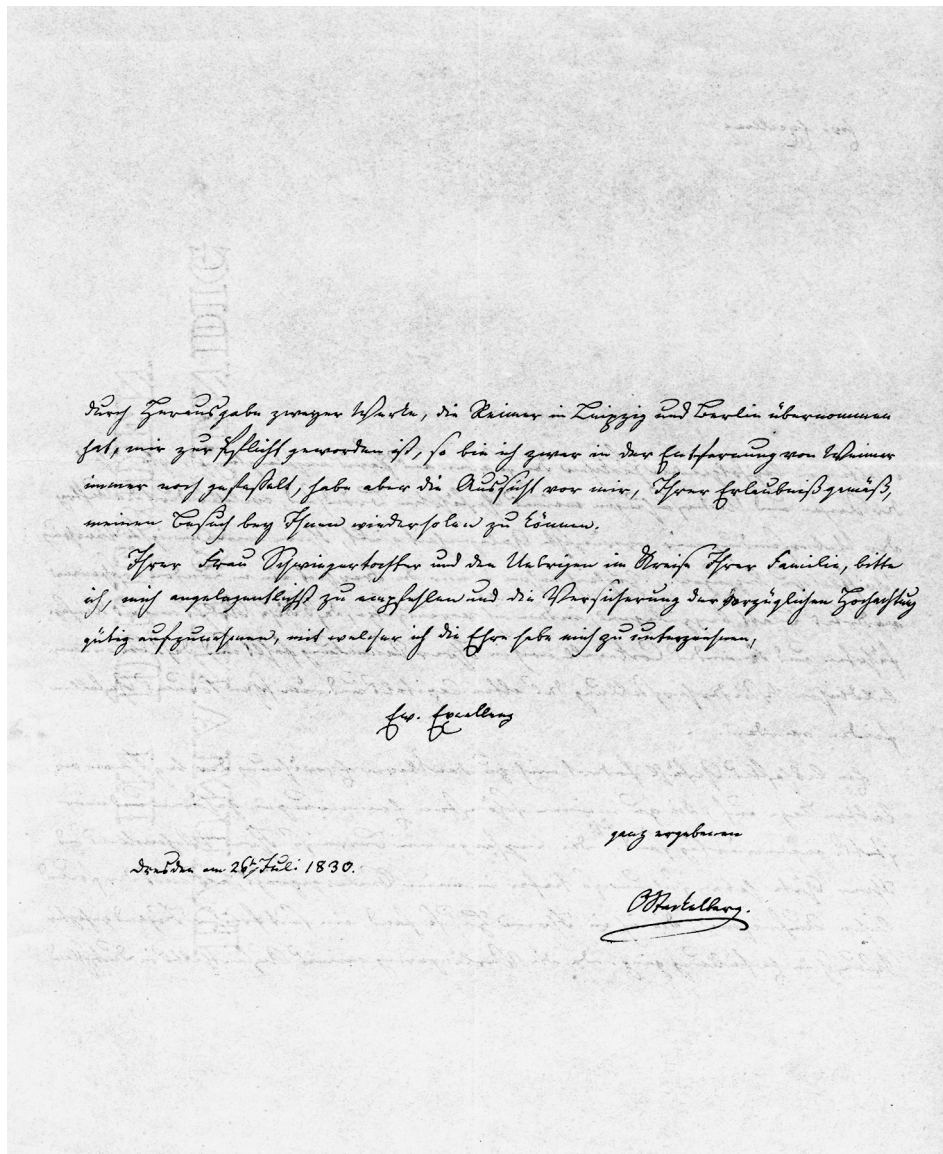 durch Herausgabe zweyer Werke, die Reimer in Leipzig und Berlin übernommen
hat, mir zur Pflicht geworden ist, so bin ich zwar in der Entfernung von Weimar
immer noch gefesselt, habe aber die Aussicht vor mir, Ihrer Erlaubniß gemäß,
meinen Besuch bey Ihnen wiederholen zu können.
Ihrer Frau Schwiegertochter und den Uebrigen im Kreise Ihrer Familie, bitte
ich, mich angelegentlichst zu empfehlen und die Versicherung der vorzüglichen Hochachtung
gütig aufzunehmen, mit welcher ich die Ehre habe mich zu unterzeichnen,
Ew. Excellenz
ganz ergebenen
Dresden am 26t Juli 1830.
OStackelberg.